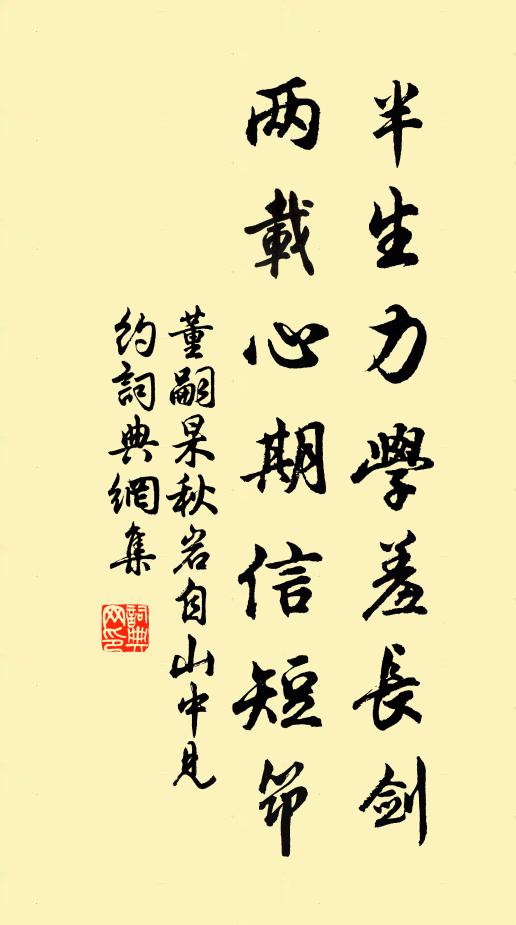 半生力學羞長剑
两載心期信短筇
董嗣杲秋岩自山中見
約詞典網集
詞典
网印